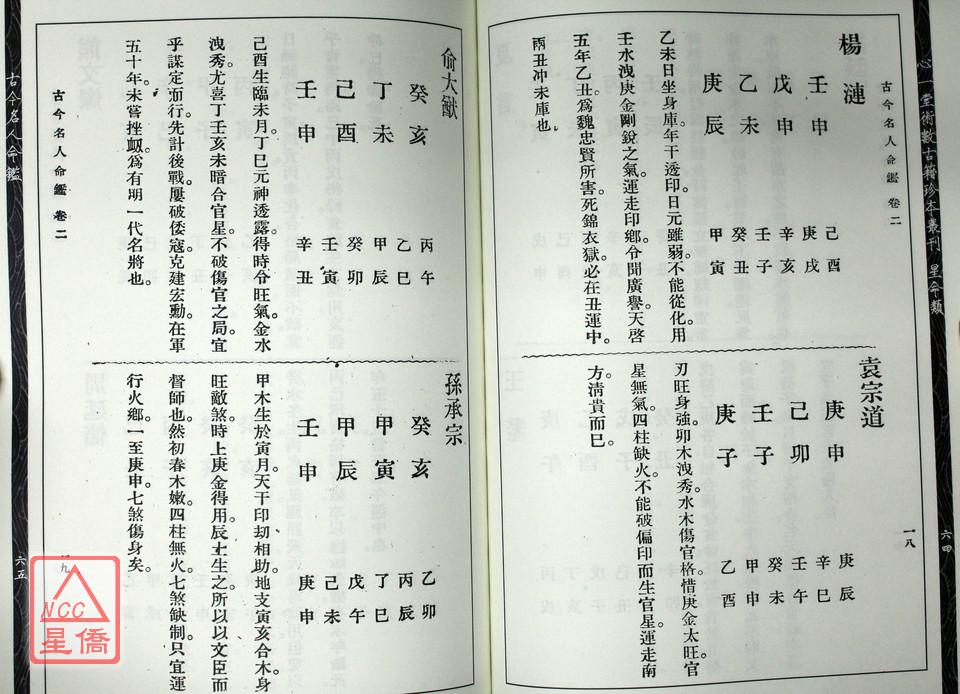 心一堂術數古籍珍本叢刊 星命類
六四
古今名人命鑑 卷二
一八
楊漣
壬申
戊申
乙未
庚辰
己酉
庚戌
辛亥
壬子
癸丑
甲寅
乙未日坐身庫。年干透印。日元雖弱。不能從化。用
壬水洩庚金剛銳之氣。運走印鄉。令聞廣譽。天啓
五年乙丑。爲魏忠賢所害。死錦衣獄。必在丑運中。
兩丑冲未庫也。
袁宗道
庚申
己卯
壬子
庚子
庚辰
辛巳
壬午
癸未
甲申
乙酉
刃旺身強。卯木洩秀。水木傷官格。惜庚金太旺。官
星無氣。四柱缺火。不能破偏印而生官星。運走南
方。淸貴而巳。
俞大猷
癸亥
丁未
己酉
壬申
丙午
乙巳
甲辰
癸卯
壬寅
辛丑
己酉生臨未月。丁巳元神透露。得時令旺氣。金水
洩秀。尤喜丁壬亥未暗合官星。不破傷官之局。宜
乎謀定而行。先計後戰。屢破倭寇。克建宏勳。在軍
五十年。未嘗挫衂。爲有明一代名將也。
孫承宗
癸亥
甲寅
甲辰
壬申
乙卯
丙辰
丁巳
戊午
己未
庚申
甲木生於寅月。天干印刧相助。地支寅亥合木。身
旺敵煞。時上庚金得用。辰土生之。所以以文臣而
督師也。然初春木嫩。四柱無火。七煞缺制。只宜運
行火鄉。一至庚申。七煞傷身矣。
古今名人命鑑 卷二
一九
古今名人命鑑
六五
NCC
星僑